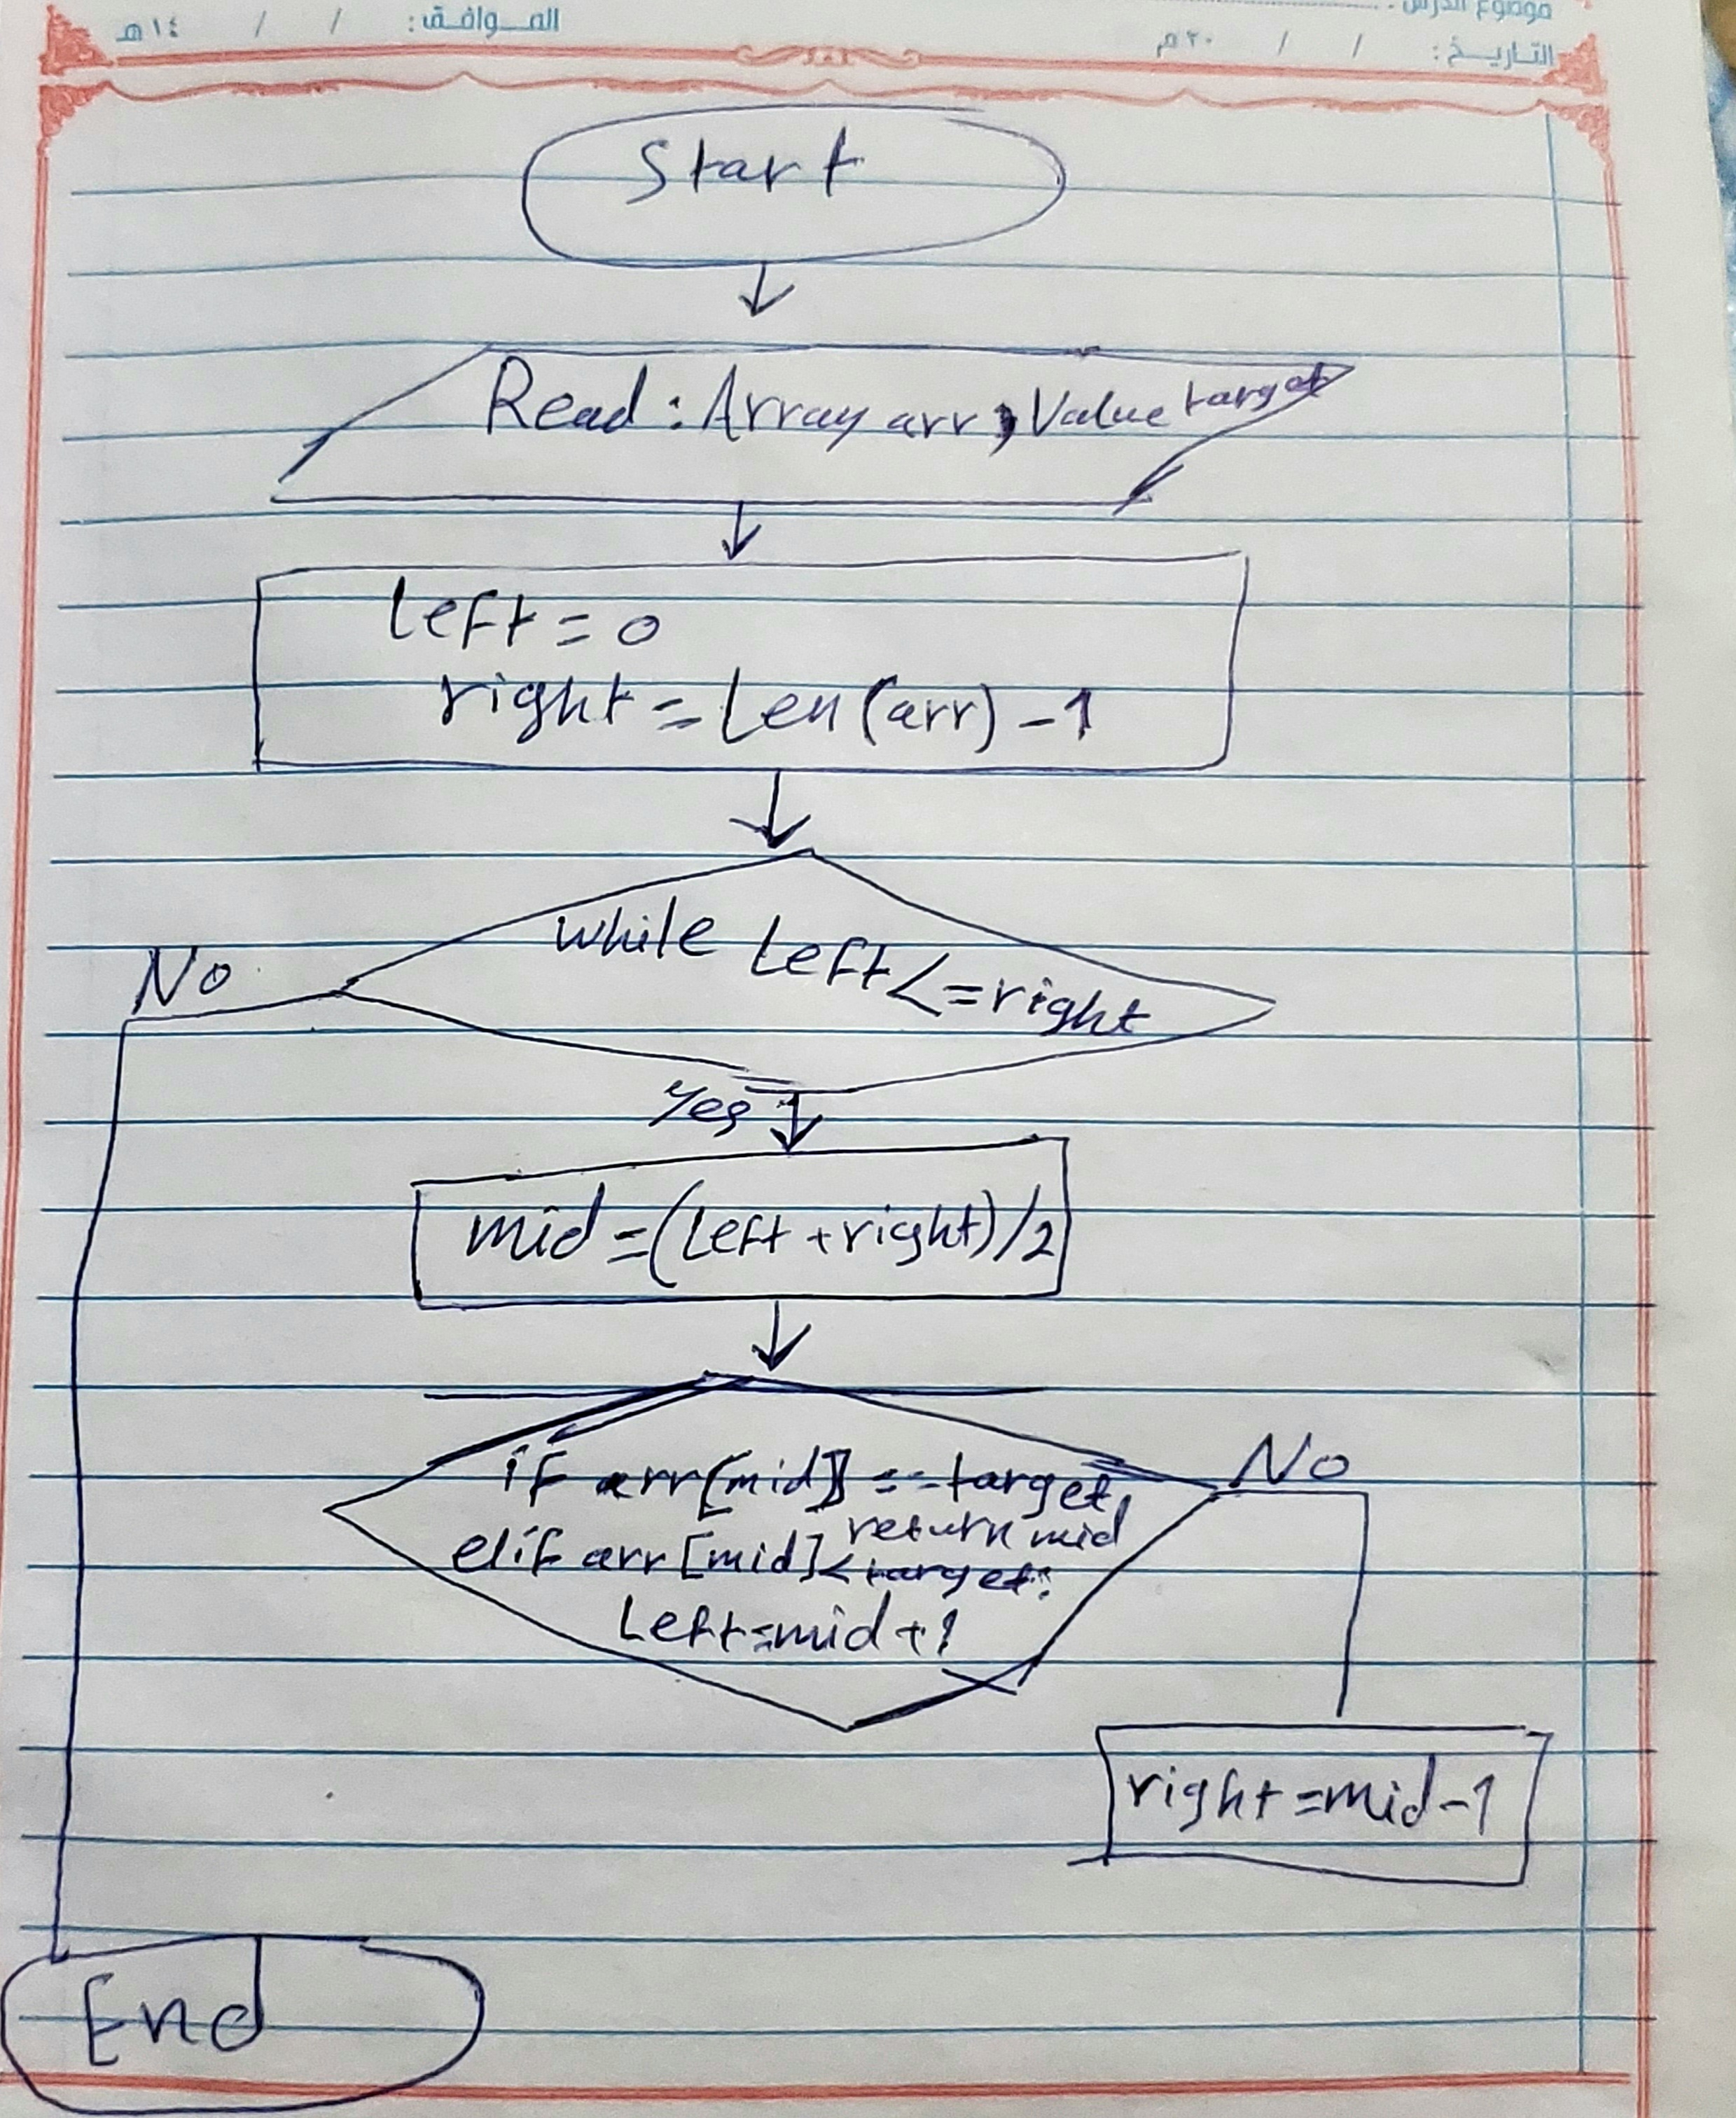 موضوع الدرس :
الموافق : / / ١٤هـ
التاريخ : / / ٢٠م
Start
Read : Array arr , Value target
left = 0
right = Len (arr) - 1
while Left <= right
No
Yes
mid = (Left + right) / 2
if arr[mid] == target
return mid
No
elif arr [mid] < target :
Left = mid + 1
right = mid - 1
End